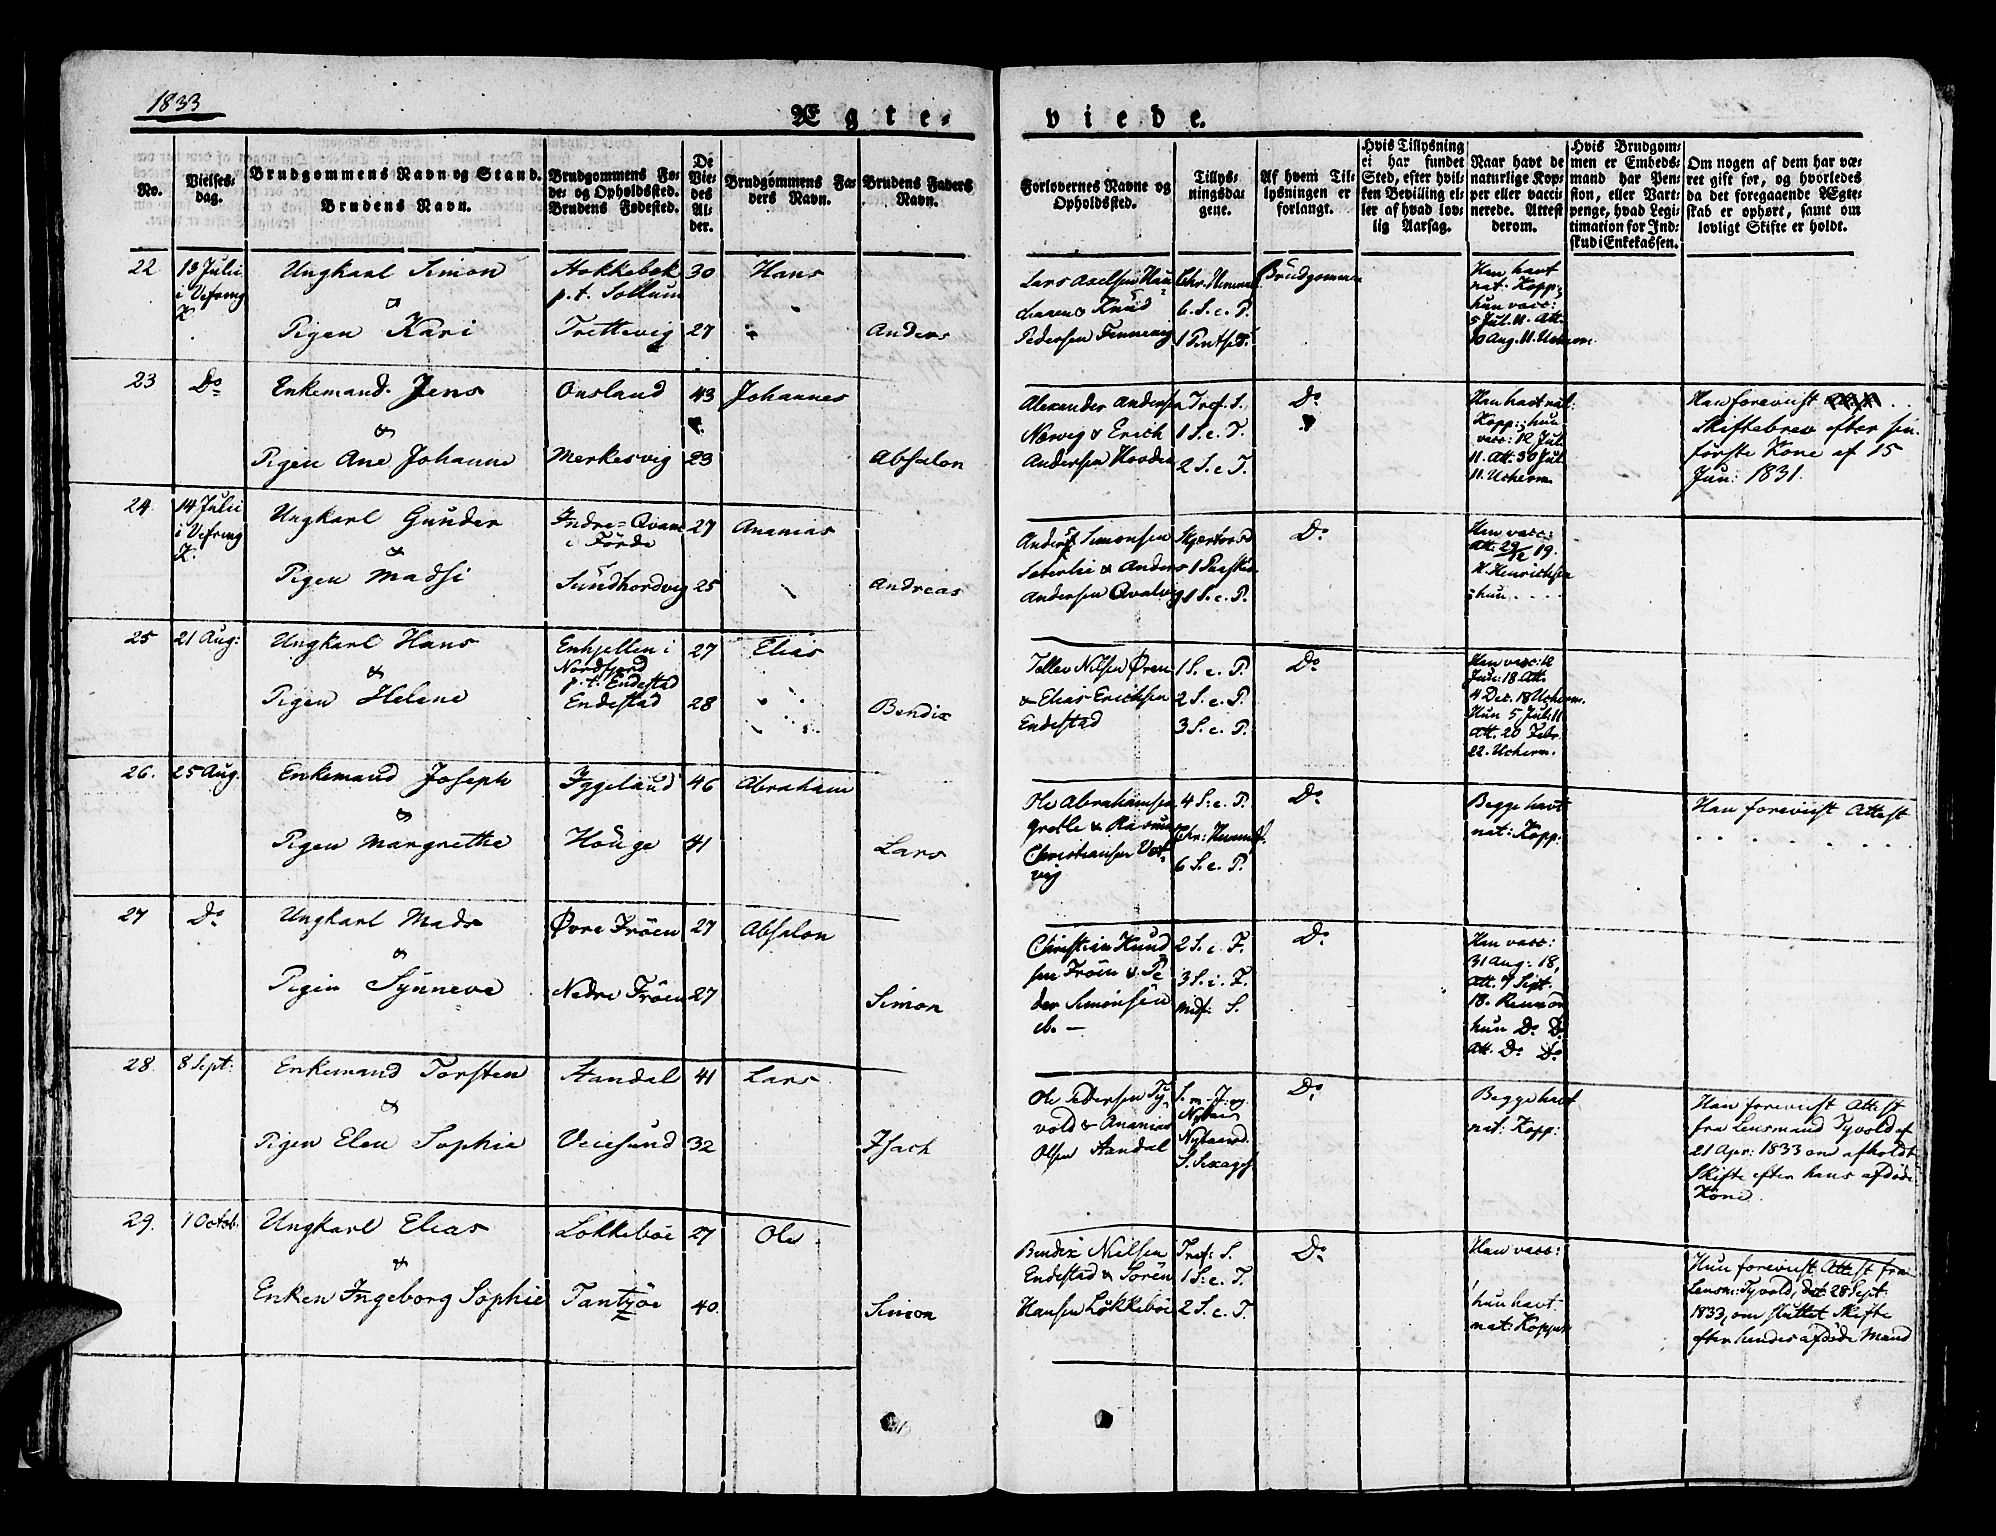 1833
Ægte-
viede.
No.
Vielses-
dag.
Brudgommens Navn og Stand.
Brudens Navn.
Brudgommens Fø-
de- og Opholdssted.
Brudens Fødested.
De
Vie-
des
Al-
der.
Brudgommens Fa-
ders Navn.
Brudens Faders
Navn.
Forlovernes Navne og
Opholdssted.
Tillys-
ningsda-
gene.
Af hvem Til-
lysningen er
forlangt.
Hvis Tillysning
ei har fundet
Sted, efter hvil-
ken Bevilling el-
ler af hvad lov-
lig Aarsag.
Naar havt de
naturlige Kop-
per eller vacci-
nerede. Attest
derom.
Hvis Brudgom-
men er Embeds-
mand har Pen-
sion, eller Vart-
penge, hvad Legi-
timation for Ind-
skud i Enkekassen.
Om nogen af dem har væ-
ret gift før, og hvorledes
da det foregaaende Ægte-
skab er ophørt, samt om
lovligt Skifte er holdt.
22
13 Julii
i Vefring
K.
Ungkarl Simon
&
Pigen Kari
Stokkebek
p. t. Sollum
Trettevig
30
27
Hans
Anders
Lars Axelsen Hau-
Knud
Pedersen Femmevig
Chr. Himmel
6. S. e. P.
1 Pintsed.
Brudgommen
Han havt
nat. Kopp;
hun vacc:
5 Jul. 11. Att.
10 Aug. 11. Ucherm.
23
Do
Enkemand Jens
&
Pigen Ane Johanne
Ousland
Merkesvig
43
23
Johannes
Absalon
Alexander Andersen
Nærvig & Erich
Andersen Hovden
Tref. S.
1 S. e. T.
2 S. e. T.
Do
Han havt nat:
Kopp; hun
vacc: 12 Jul.
11. Att. 30 Jul.
11. Ucherm.
Han foreviist
Skiftebrev efter sin
første Kone af 15
Jun: 1831.
24.
14 Julii
i Vefring
K.
Ungkarl Gunder
&
Pigen Madsi
Indre-Qvam
i Förde
Sundhordvig
27
25
Ananias
Andreas
Anders Simonsen
Sæterlie & Anders
Andersen Qvalvig
Skjærtorsd
1 Paaskd.
1 S. e. P.
Do
Han vacc:
Att. 29/12 19.
H. Henrichsen
; hun . . . .
25
21 Aug:
Ungkarl Hans
&
Pigen Helene
Enhjellen i
Nordfjord
p. t: Endestad
Endestad
27
28
Elias
Bendix
Tellev Nilsen Øren
& Elias Erichsen
Endestad
1 S. e. P.
2 S. e. P.
3 S. e. P.
Do
Han vacc: 12
Jun: 18 Att.
4 Dec. 18 Ucherm.
Hun 5 Jul: 11
Att. 20 Febr.
22. Ucherm.
26.
25 Aug.
Enkemand Joseph
&
Pigen Margrethe
Yggeland
Houge
46
41
Abraham
Lars
Ole Abrahamsen
Grotle & Rasmus
Christiansen Vet-
vig
4 S. e. P.
Chr: Himmelf.
6 S. e. P.
Do
Begge havt
nat: Kopp:
Han foreviist Attest
. . . . . . .
27
Do
Ungkarl Mads
&
Pigen Synneve
Øvre Fröen
Nedre Fröen
27
27
Absalon
Simon
Christian Knud
sen Fröen & Pe
der Simonsen
ib. —
2 S. e. F.
3 S. i. F.
Midf: S.
Do
Han vacc:
31 Aug: 18,
Att. 7 Sept.
18. Rennord
hun Do Do
Att. Do Do
28.
8 Sept:
Enkemand Torsten
&
Pigen Elen Sophie
Standal
Veiesund
41
32
Lars
Isach
Ole Pedersen Ty-
vold & Ananias
Olsen Standal
S. m. J. og
Nytaar
Nytaarsd.
S. Sexages
Do
Begge havt
nat: Kopp:
Han foreviist Attest
fra Lensmand Tyvold af
21 Apr: 1833 om afholdt
Skifte efter hans afdöde
Kone.
29.
1 Octob.
Ungkarl Elias
&
Enken Ingeborg Sophie
Lökkeböe
Tantjöe
27
40.
Ole
Simon
Bendix Nielsen
Endestad & Sören
Hansen Lökkeböe
Tref: S.
1 S. e. T.
2 S. e. T.
Do
Han vacc:
hun havt
nat: Kopper
Hun foreviist Attest fra
Lensm: Tyvold, dat. 28 Sept.
1833, om sluttet Skifte
efter hendes afdöde Mand